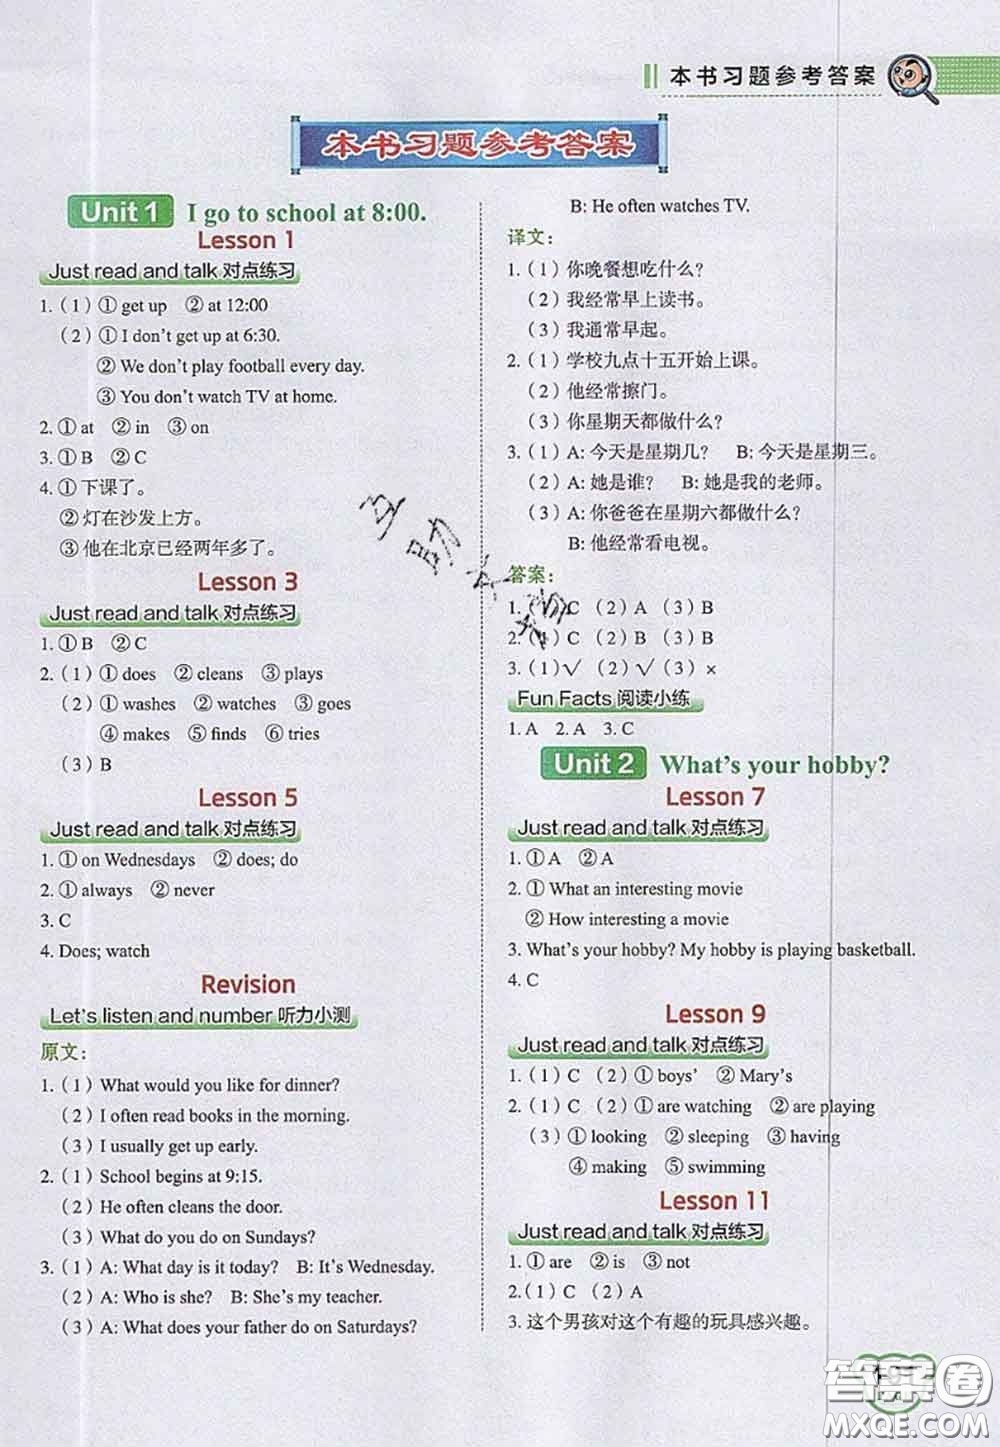 本书习题参考答案
本书习题参考答案
Unit 1 I go to school at 8:00.
Lesson 1
Just read and talk 对点练习
1.（1）① get up ② at 12:00
（2）① I don't get up at 6:30.
② We don't play football every day.
③ You don't watch TV at home.
2. ① at ② in ③ on
3. ① B ② C
4. ① 下课了。
② 灯在沙发上方。
③ 他在北京已经两年多了。
Lesson 3
Just read and talk 对点练习
1. ① B ② C
2.（1）① does ② cleans ③ plays
（2）① washes ② watches ③ goes
④ makes ⑤ finds ⑥ tries
（3）B
Lesson 5
Just read and talk 对点练习
1. ① on Wednesdays ② does; do
2. ① always ② never
3. C
4. Does; watch
Revision
Let's listen and number 听力小测
原文：
1.（1）What would you like for dinner?
（2）I often read books in the morning.
（3）I usually get up early.
2.（1）School begins at 9:15.
（2）He often cleans the door.
（3）What do you do on Sundays?
3.（1）A: What day is it today? B: It's Wednesday.
（2）A: Who is she? B: She's my teacher.
（3）A: What does your father do on Saturdays?
B: He often watches TV.
译文：
1.（1）你晚餐想吃什么？
（2）我经常早上读书。
（3）我通常早起。
2.（1）学校九点十五开始上课。
（2）他经常擦门。
（3）你星期天都做什么？
3.（1）A: 今天是星期几？ B: 今天是星期三。
（2）A: 她是谁？ B: 她是我的老师。
（3）A: 你爸爸在星期六都做什么？
B: 他经常看电视。
答案：
1.（1）C （2）A （3）B
2.（1）C （2）B （3）B
3.（1）√ （2）√ （3）×
Fun Facts 阅读小练
1. A 2. A 3. C
Unit 2 What's your hobby?
Lesson 7
Just read and talk 对点练习
1. ① A ② A
2. ① What an interesting movie
② How interesting a movie
3. What's your hobby? My hobby is playing basketball.
4. C
Lesson 9
Just read and talk 对点练习
1.（1）C （2）① boys' ② Mary's
2.（1）C （2）① are watching ② are playing
（3）① looking ② sleeping ③ having
④ making ⑤ swimming
Lesson 11
Just read and talk 对点练习
1. ① are ② is ③ not
2.（1）C （2）A
3. 这个男孩对这个有趣的玩具感兴趣。
答案卷
MXQE.COM